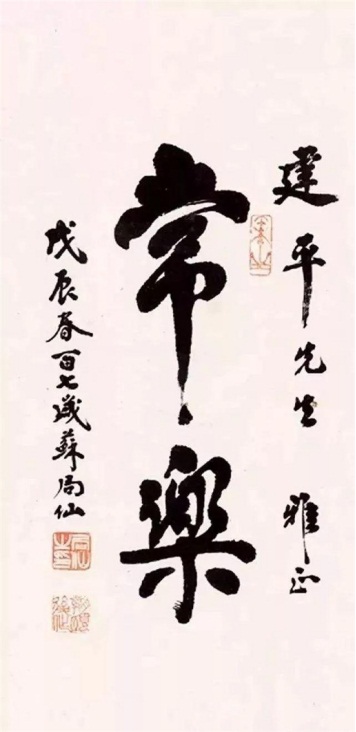 建平先生 雅正
常樂
戊辰春百七歲蘇局仙